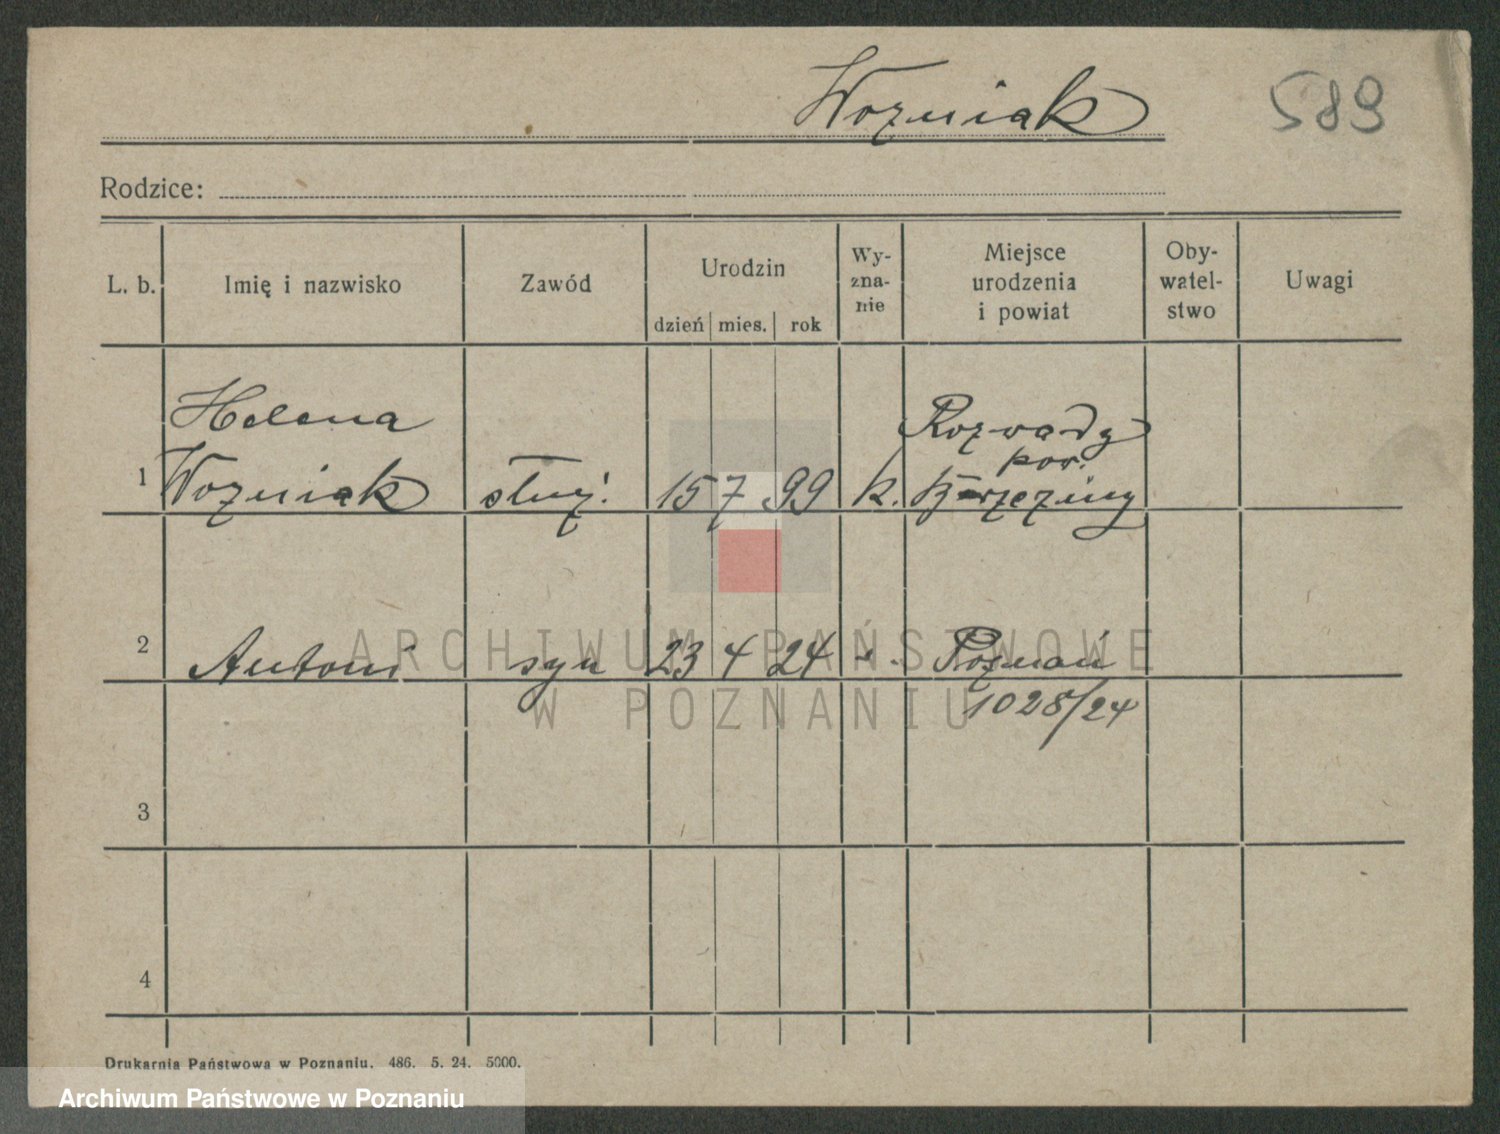 Wozniak
589
Rodzice:
L. b.
Imię i nazwisko
Zawód
Urodzin
dzień mies. rok
Wy-
zna-
nie
Miejsce
urodzenia
i powiat
Oby-
watel-
stwo
Uwagi
Helena
1 Wozniak służ. 15 7 99 k.
Rozwady
pow.
Brzeziny
2 Antoni syn 23 4 24 " . Poznań
1028/24
3
4
ARCHIWUM PAŃSTWOWE
W POZNANIU
Drukarnia Państwowa w Poznaniu. 486. 5. 24. 5000.
Archiwum Państwowe w Poznaniu